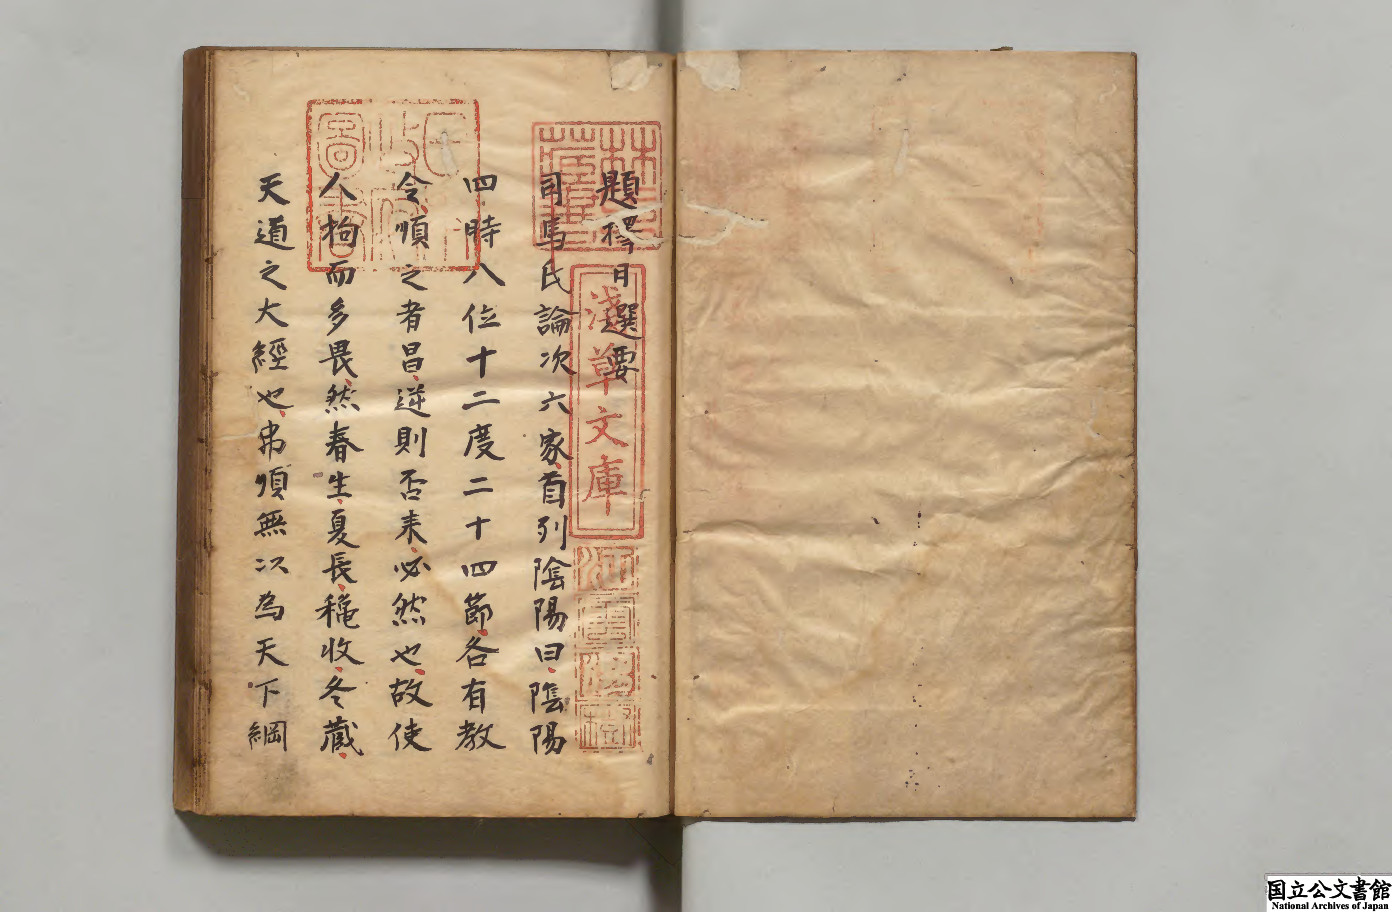 題擇日選要
司馬氏論次六家、首列陰陽曰、陰陽
四時八位十二度二十四節、各有教
令、順之者昌、逆則否未、必然也、故使
人拘而多畏、然春生、夏長、穐收、冬藏、
天道之大經也、弗順無次為天下綱
林氏藏書
淺草文庫
圖書
国立公文書館
National Archives of Japan